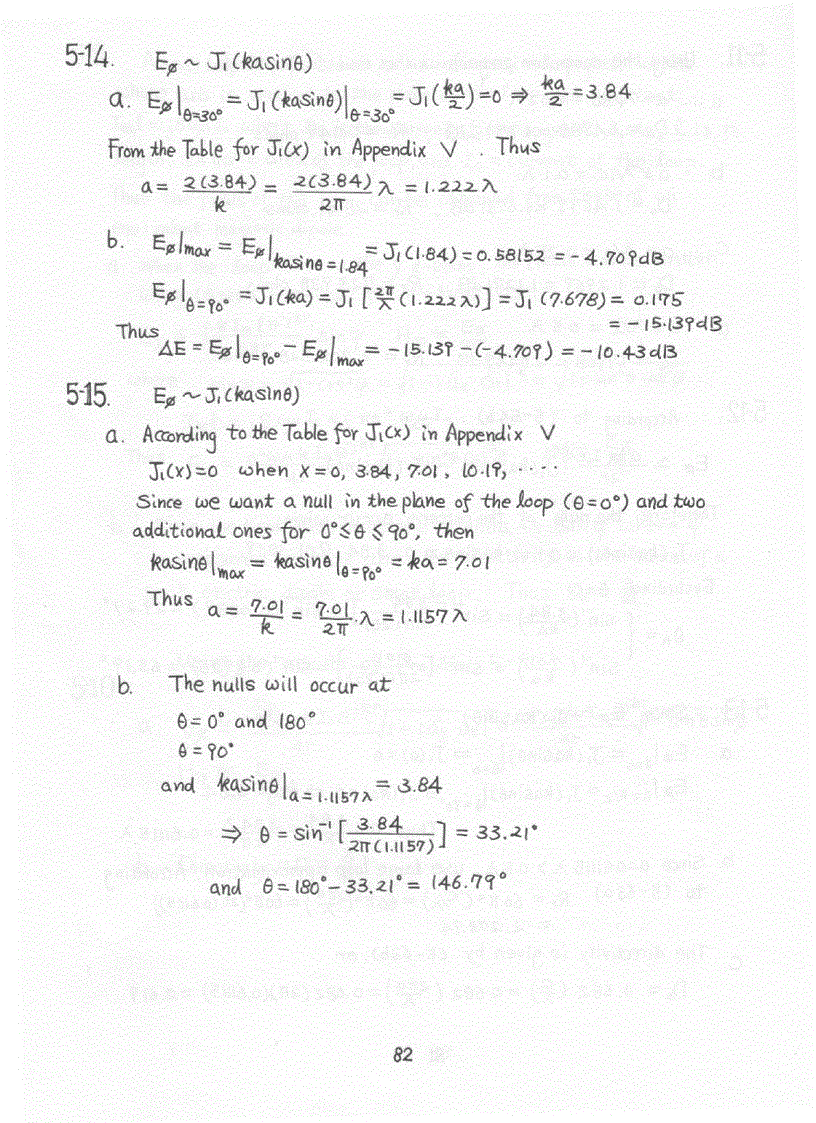 5-14. E∅ ~ J₁(kasinθ)
a. E∅|θ=30° = J₁(kasinθ)|θ=30° = J₁(ka/2) = 0 ⇒ ka/2 = 3.84
From the Table for J₁(x) in Appendix V . Thus
a = 2(3.84)/k = 2(3.84)/2π λ = 1.222λ
b. E∅|max = E∅|kasinθ=1.84 = J₁(1.84) = 0.58152 = -4.709dB
E∅|θ=90° = J₁(ka) = J₁[2π/λ(1.222λ)] = J₁(7.678) = 0.175
= -15.139dB
Thus
ΔE = E∅|θ=90° - E∅|max = -15.139 - (-4.709) = -10.43dB
5-15. E∅ ~ J₁(kasinθ)
a. According to the Table for J₁(x) in Appendix V
J₁(x)=0 when x = 0, 3.84, 7.01, 10.19, ····
Since we want a null in the plane of the loop (θ=0°) and two
additional ones for 0°≤θ≤90°, then
kasinθ|max = kasinθ|θ=90° = ka = 7.01
Thus a = 7.01/k = 7.01/2π·λ = 1.1157λ
b. The nulls will occur at
θ = 0° and 180°
θ = 90°
and kasinθ|a=1.1157λ = 3.84
⇒ θ = sin⁻¹[3.84/2π(1.1157)] = 33.21°
and θ = 180° - 33.21° = 146.79°
82